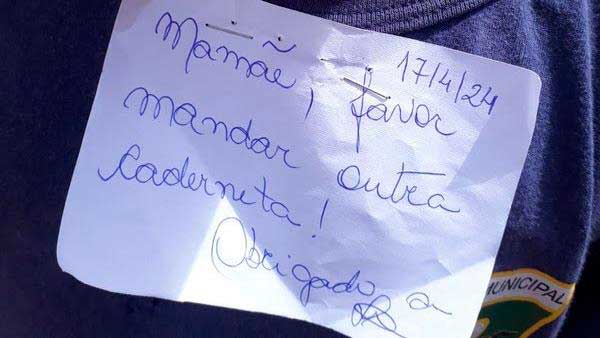 17/4/24
Mamãe, favor
mandar outra
caderneta!
Obrigada
MUNICIPAL